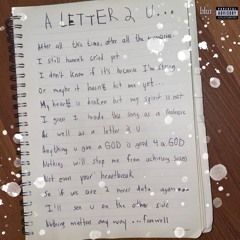 A LETTER 2 U...
After all this time, after all the memories
I still haven't cried yet...
I don't know if it's because I'm strong
Or maybe it hasn't hit me yet...
My heart is broken but my spirit is not
I guess I made the song as a
As well as a letter 2 U
Anything u give a GOD is good 4 a GOD
Nothing will stop me from achieving success
Not even your heartbreak
So if we are 2 never date again...
I'll see u on the other side
Nothing matters any way... farewell
blu
PARENTAL
ADVISORY
EXPLICIT CONTENT